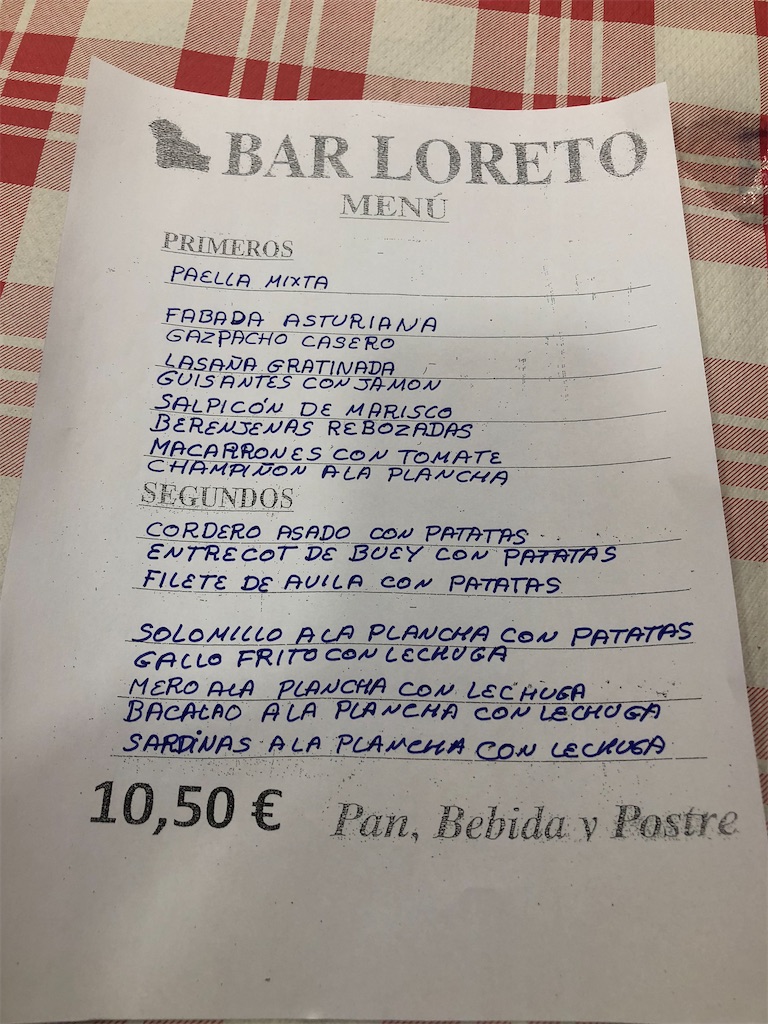 BAR LORETO
MENÚ
PRIMEROS
PAELLA MIXTA
FABADA ASTURIANA
GAZPACHO CASERO
LASAÑA GRATINADA
GUISANTES CON JAMON
SALPICÓN DE MARISCO
BERENJENAS REBOZADAS
MACARRONES CON TOMATE
CHAMPIÑON A LA PLANCHA
SEGUNDOS
CORDERO ASADO CON PATATAS
ENTRECOT DE BUEY CON PATATAS
FILETE DE AVILA CON PATATAS
SOLOMILLO A LA PLANCHA CON PATATAS
GALLO FRITO CON LECHUGA
MERO A LA PLANCHA CON LECHUGA
BACALAO A LA PLANCHA CON LECHUGA
SARDINAS A LA PLANCHA CON LECHUGA
10,50 € Pan, Bebida y Postre